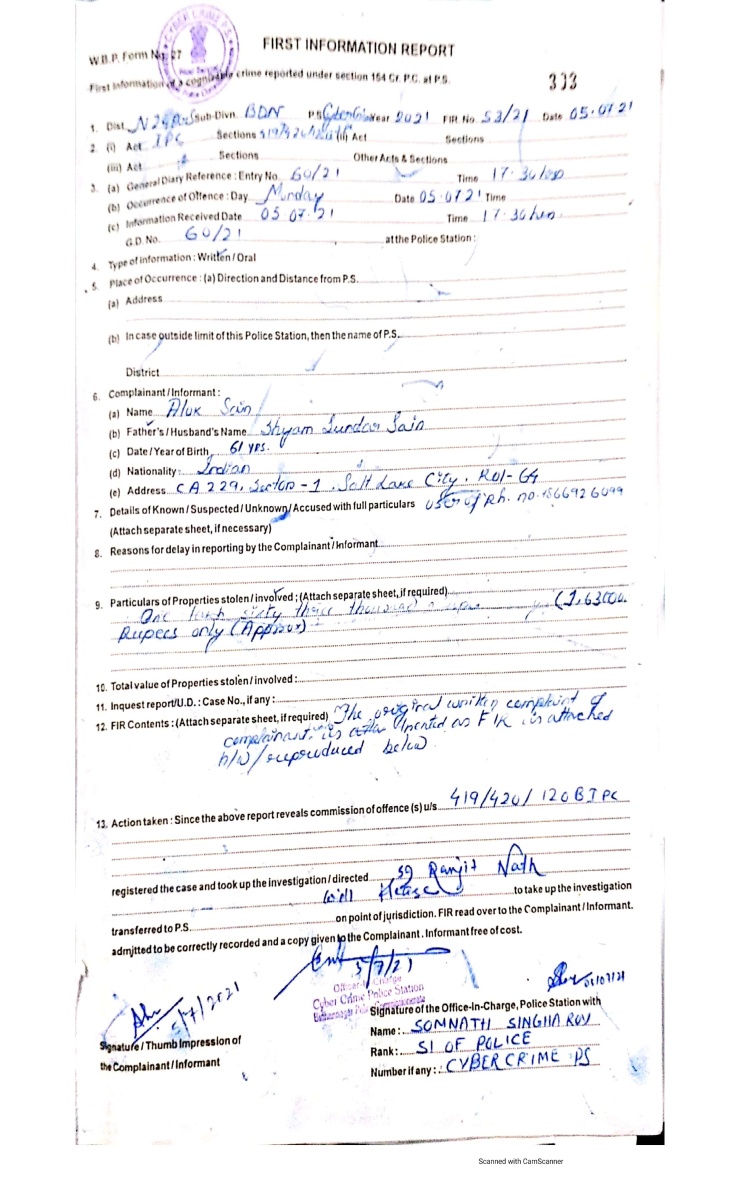 W.B.P. Form No. 27
FIRST INFORMATION REPORT
First Information of a cognizable crime reported under section 154 Cr. P.C. at P.S.
CYBER CRIME P.S.
1. Dist. N 24 Sub-Divn. BDN P.S. Year 2021 FIR. No. 53/21 Date 05.07.21
2. (i) Act IPC Sections 419/420/ (ii) Act Sections
(iii) Act Sections Other Acts & Sections
3. (a) General Diary Reference : Entry No. 60/21 Time 17.30 hrs
(b) Occurrence of Offence : Day Monday Date 05.07.21 Time
(c) Information Received Date 05.07.21 Time 17.30 hrs.
G.D. No. 60/21 at the Police Station :
4. Type of information : Written / Oral
5. Place of Occurrence : (a) Direction and Distance from P.S.
(a) Address
(b) In case outside limit of this Police Station, then the name of P.S.
District
6. Complainant / Informant :
(a) Name Alok Sain
(b) Father's / Husband's Name Shyam Sundar Sain
(c) Date / Year of Birth 61 yrs.
(d) Nationality : Indian
(e) Address CA 229, Sector - 1, Salt Lake City, Kol-64
7. Details of Known / Suspected / Unknown / Accused with full particulars user of Ph. no.
(Attach separate sheet, if necessary)
8. Reasons for delay in reporting by the Complainant / Informant
9. Particulars of Properties stolen / involved ; (Attach separate sheet, if required)
One lakh sixty three thousand (1,63000
Rupees only (Approx)
10. Total value of Properties stolen / involved :
11. Inquest report / U.D. : Case No., if any :
12. FIR Contents : (Attach separate sheet, if required) The original written complaint of
complainant, is treated as FIR is attached
h/w / reproduced below
13. Action taken : Since the above report reveals commission of offence (s) u/s. 419/420/120B IPC
registered the case and took up the investigation / directed SI Ranjit Nath
will to take up the investigation
transferred to P.S. on point of jurisdiction. FIR read over to the Complainant / Informant.
admitted to be correctly recorded and a copy given to the Complainant. Informant free of cost.
5/7/21
Officer-In-Charge
Cyber Crime Police Station
5/7/2021
05/07/21
Signature of the Office-In-Charge, Police Station with
Signature / Thumb Impression of
the Complainant / Informant
Name : SOMNATH SINGHA ROY
Rank : SI OF POLICE
Number if any : CYBER CRIME PS
Scanned with CamScanner